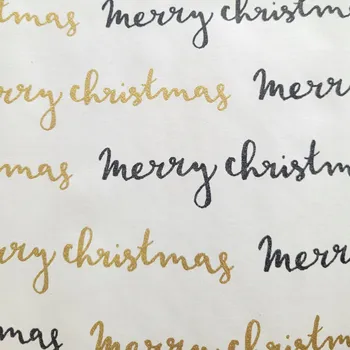 tmas merry christmas
erry christmas merr
tmas merry christmas
rry christmas merr
mas merry christmas